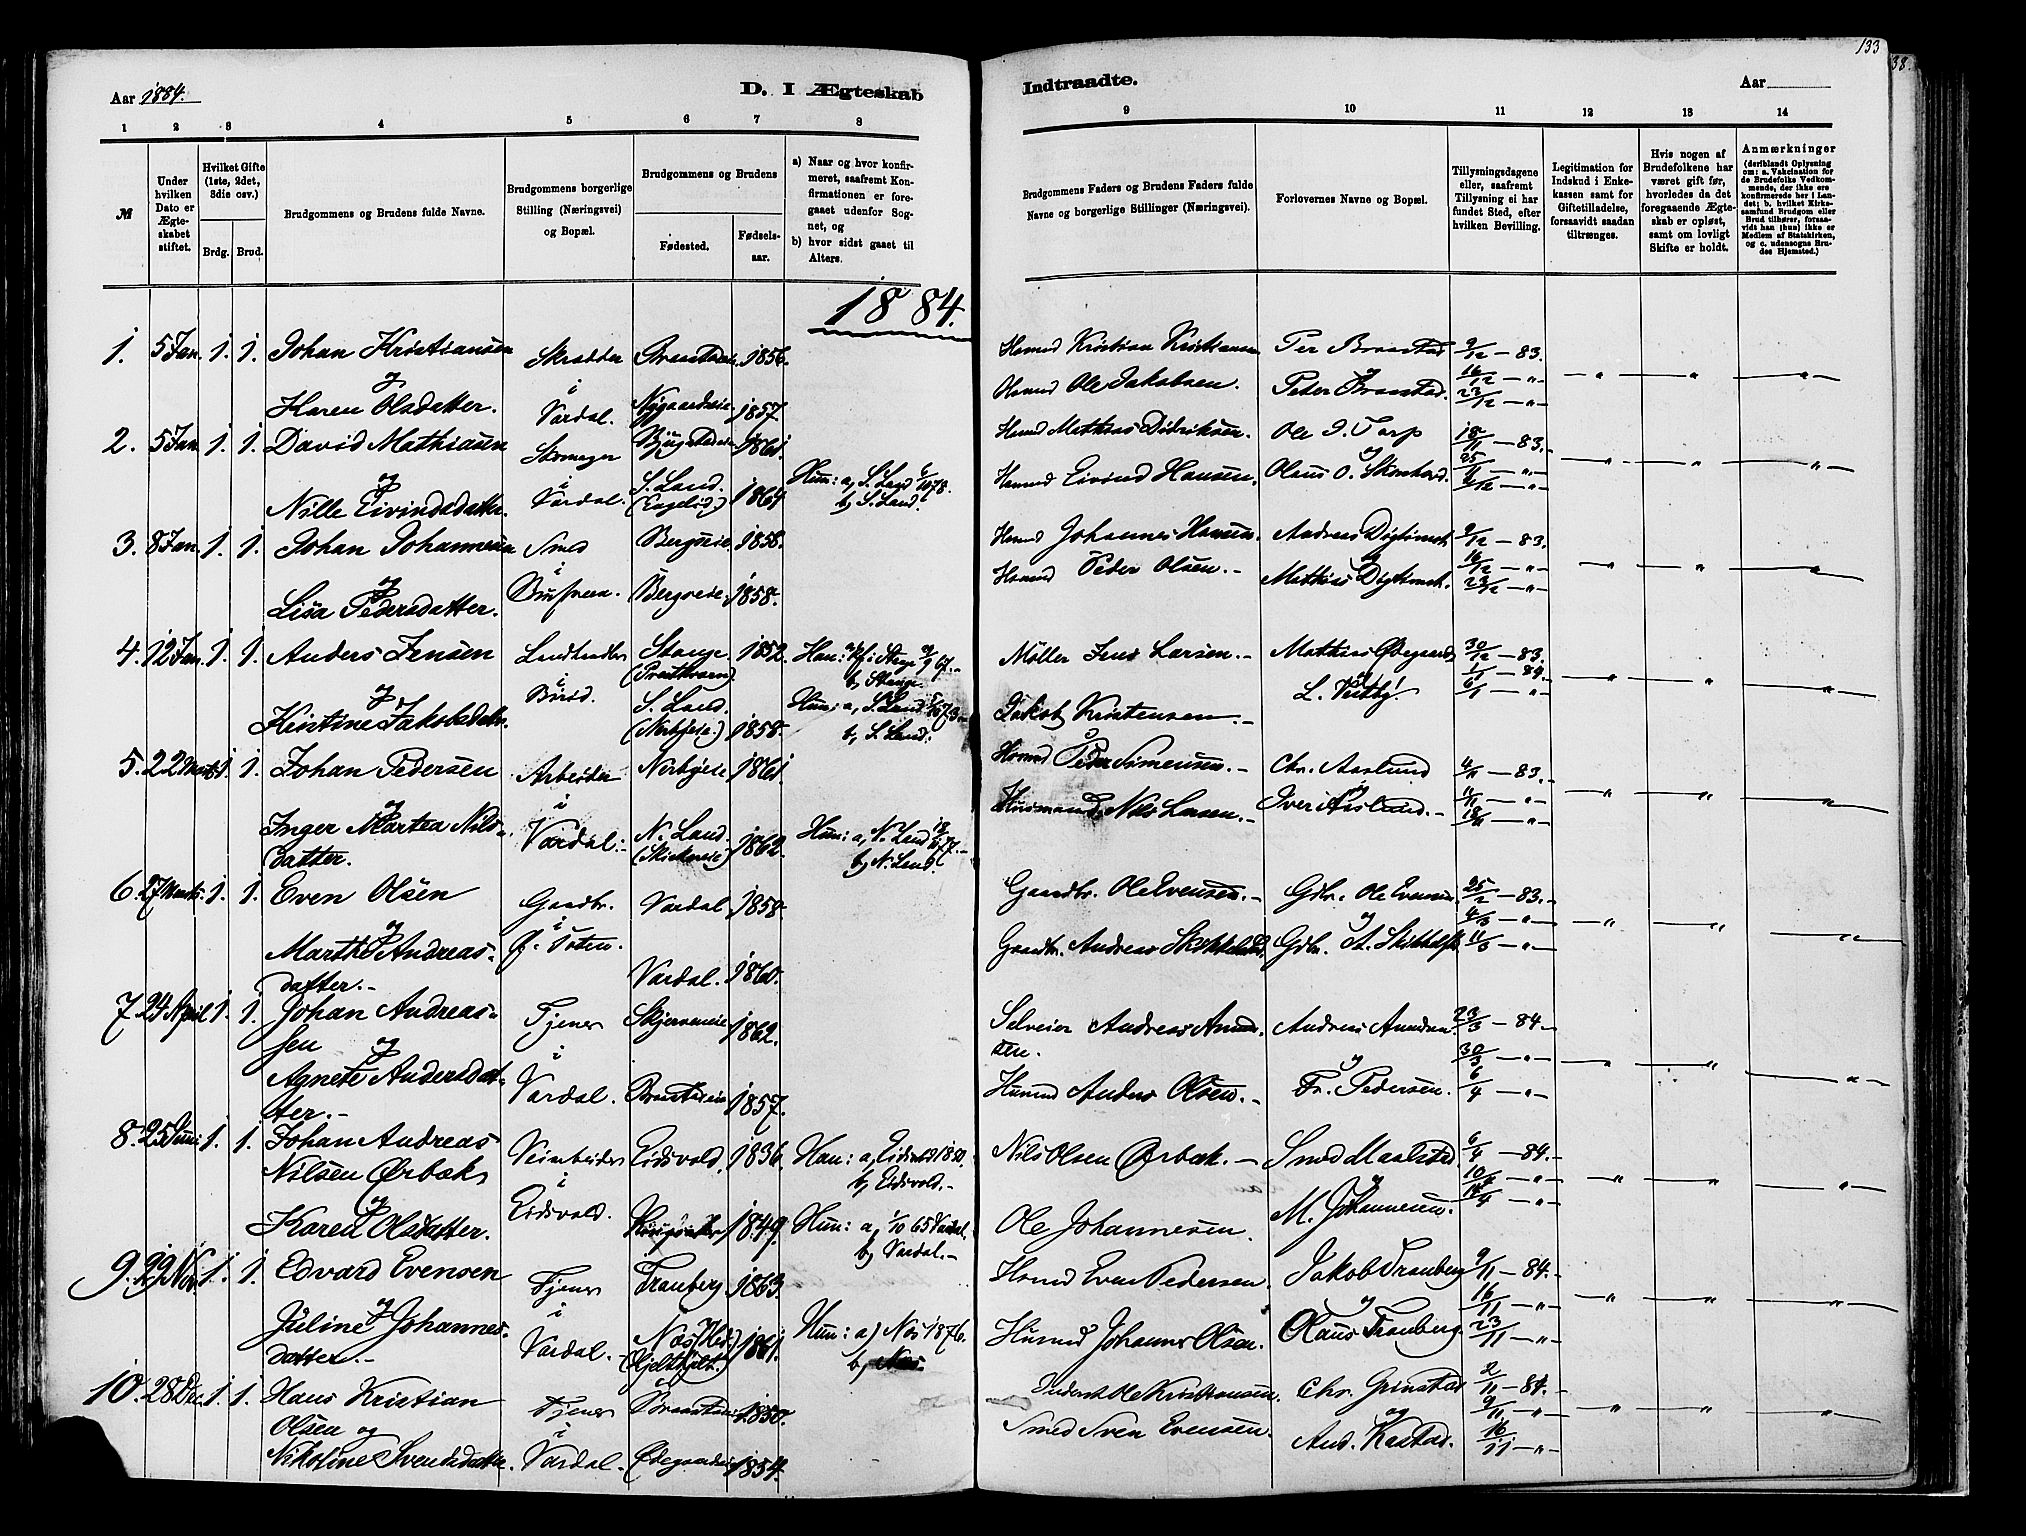 133
38.
Aar 1884.
D. I Ægteskab
Indtraadte.
Aar
1 2 3 4 5 6 7 8
9 10 11 12 13 14
№
Under hvilken Dato er Ægteskabet stiftet.
Hvilket Gifte (1ste, 2det, 3die osv.)
Brdg. Brud.
Brudgommens og Brudens fulde Navne.
Brudgommens borgerlige Stilling (Næringsvei) og Bopæl.
Brudgommens og Brudens
Fødested. Fødselsaar.
a) Naar og hvor konfirmeret, saafremt Konfirmationen er foregaaet udenfor Sognet, og
b) hvor sidst gaaet til Alters.
Brudgommens Faders og Brudens Faders fulde Navne og borgerlige Stillinger (Næringsvei).
Forlovernes Navne og Bopæl.
Tillysningsdagene eller, saafremt Tillysning ei har fundet Sted, efter hvilken Bevilling.
Legitimation for Indskud i Enkekassen samt for Giftetilladelse, forsaavidt saadan tiltrænges.
Hvis nogen af Brudefolkene har været gift før, hvorledes da det foregaaende Ægteskab er opløst, samt om lovligt Skifte er holdt.
Anmærkninger
(deriblandt Oplysning om: a. Vakcination for de Brudefolks Vedkommende, der ikke ere konfirmerede her i Landet; b. hvilket Kirkesamfund Brudgom eller Brud tilhører, forsaavidt han (hun) ikke er Medlem af Statskirken, og c. udensogns Brudes Hjemsted.)
1884.
1. 5 Jan. 1. 1. Johan Kristiansen Skrædder 1856. Husmd Kristian Kristiansen Per Braastad 9/12 – 83.
og i Husmd Ole Jakobsen. og 16/12 – " –
Karen Olsdatter. Vardal. 1857. Peter Braastad. 23/12 – " –
2. 5 Jan. 1. 1. David Mathiasen Skomager 1861. Husmd Mathias Didriksen. Ole P. Torp 18/11 – 83.
og i S. Land. Hun: a, S. Land 78. Husmd Eivind Hansen. Olaus O. 25/11 – " –
Nille Eivindsdatter. Vardal. 1864. b, S. Land. 2/12 – " –
3. 8 Jan. 1. 1. Johan Johannesen Smed Bergseie 1858. Husmd Johannes Hansen. Andreas 9/12 – 83.
og i Husmd Peder Olsen. – 16/12 – " –
Lisa Pedersdatter. Bergseie. 1858. Mathias 23/12 – " –
4. 12 Jan. 1. 1. Anders Jensen Landhandler Stange 1852. Han: a, Stange 67. – Møller Jens Larsen. – Mathias Ødegaard 30/12 – 83.
og i b, Stange. 1/1 – 84.
Kristine Jakobsdatter. Birid. S. Land. 1858. Hun: a, S. Land 73 – Jakob Kristensen – L. 6/1 – " –
b, S. Land.
5. 22 Marts 1. 1. Johan Pedersen Arbeider Norbyeie 1861. Husmd Peder Simensen. – Chr. Aaslund 4/11 – 83.
og i og 11/11 – " –
Inger Martea Nils- Vardal. – N. Land. 1862. Hun: a, N. Land 77. – Husmand Nils Larsen. – Iver Aaslund. – 18/11 – " –
datter. b, N. Land.
6. 27 Marts. 1. 1. Even Olsen Gaardbr. Vardal 1858. Gaardbr. Ole Evensen. – Gdbr. Ole Evensen. 25/2 – 83.
og i og 4/3 – " –
Marthe Andreas- Ø. Toten. Vardal. 1860. Gaardbr. Andreas Gdbr. A. 11/3 – " –
datter. –
7. 24 April 1. 1. Johan Andreas- Tjener 1862. Selveier Andreas Amund- Andreas Amundsen. 23/3 – 84 –
sen og i sen. og 30/3 – " –
Agnete Andersdat- Vardal. 1857. Husmd Anders Olsen. – Fr. Pedersen. 6/4 – " –
ter. –
8. 25 Juni 1. 1. Johan Andreas Veiarbeider Eidsvold. 1836. Han: a, Eidsvold 1850. Nils Olsen Ørbæk. – Smed Maalstad. 6/4 – 84. –
Nilsen Ørbæk i b, Eidsvold. – og 10/4 – " –
og
Karen Olsdatter. Eidsvold. 1849. Hun: a, 1/10 65 Vardal. Ole Johannesen. M. Johannesen. 14/4 – " –
b, Vardal. –
9. 29 Nov. 1. 1. Edvard Evensen Tjener Tranberg 1863. Husmd Even Pedersen. Jakob Tranberg 9/11 – 84. –
og i og 16/11 – " –
Juline Johannes- Vardal. – Næs, Hed. 1861. Hun: a) Næs 1876. Husmd Johannes Olsen. Olaus Tranberg. 23/11 – " –
datter. – b, Næs.
10. 28 Dec. 1. 1. Hans Kristian Tjener 1850. Ole Kristiansen. Chr. Grinstad 2/11 – 84. –
Olsen og i og 9/11 – " –
Nikoline Svendsdatter. Vardal. 1854. Smed Sven Evensen. And. Kastad. 16/11 – " –